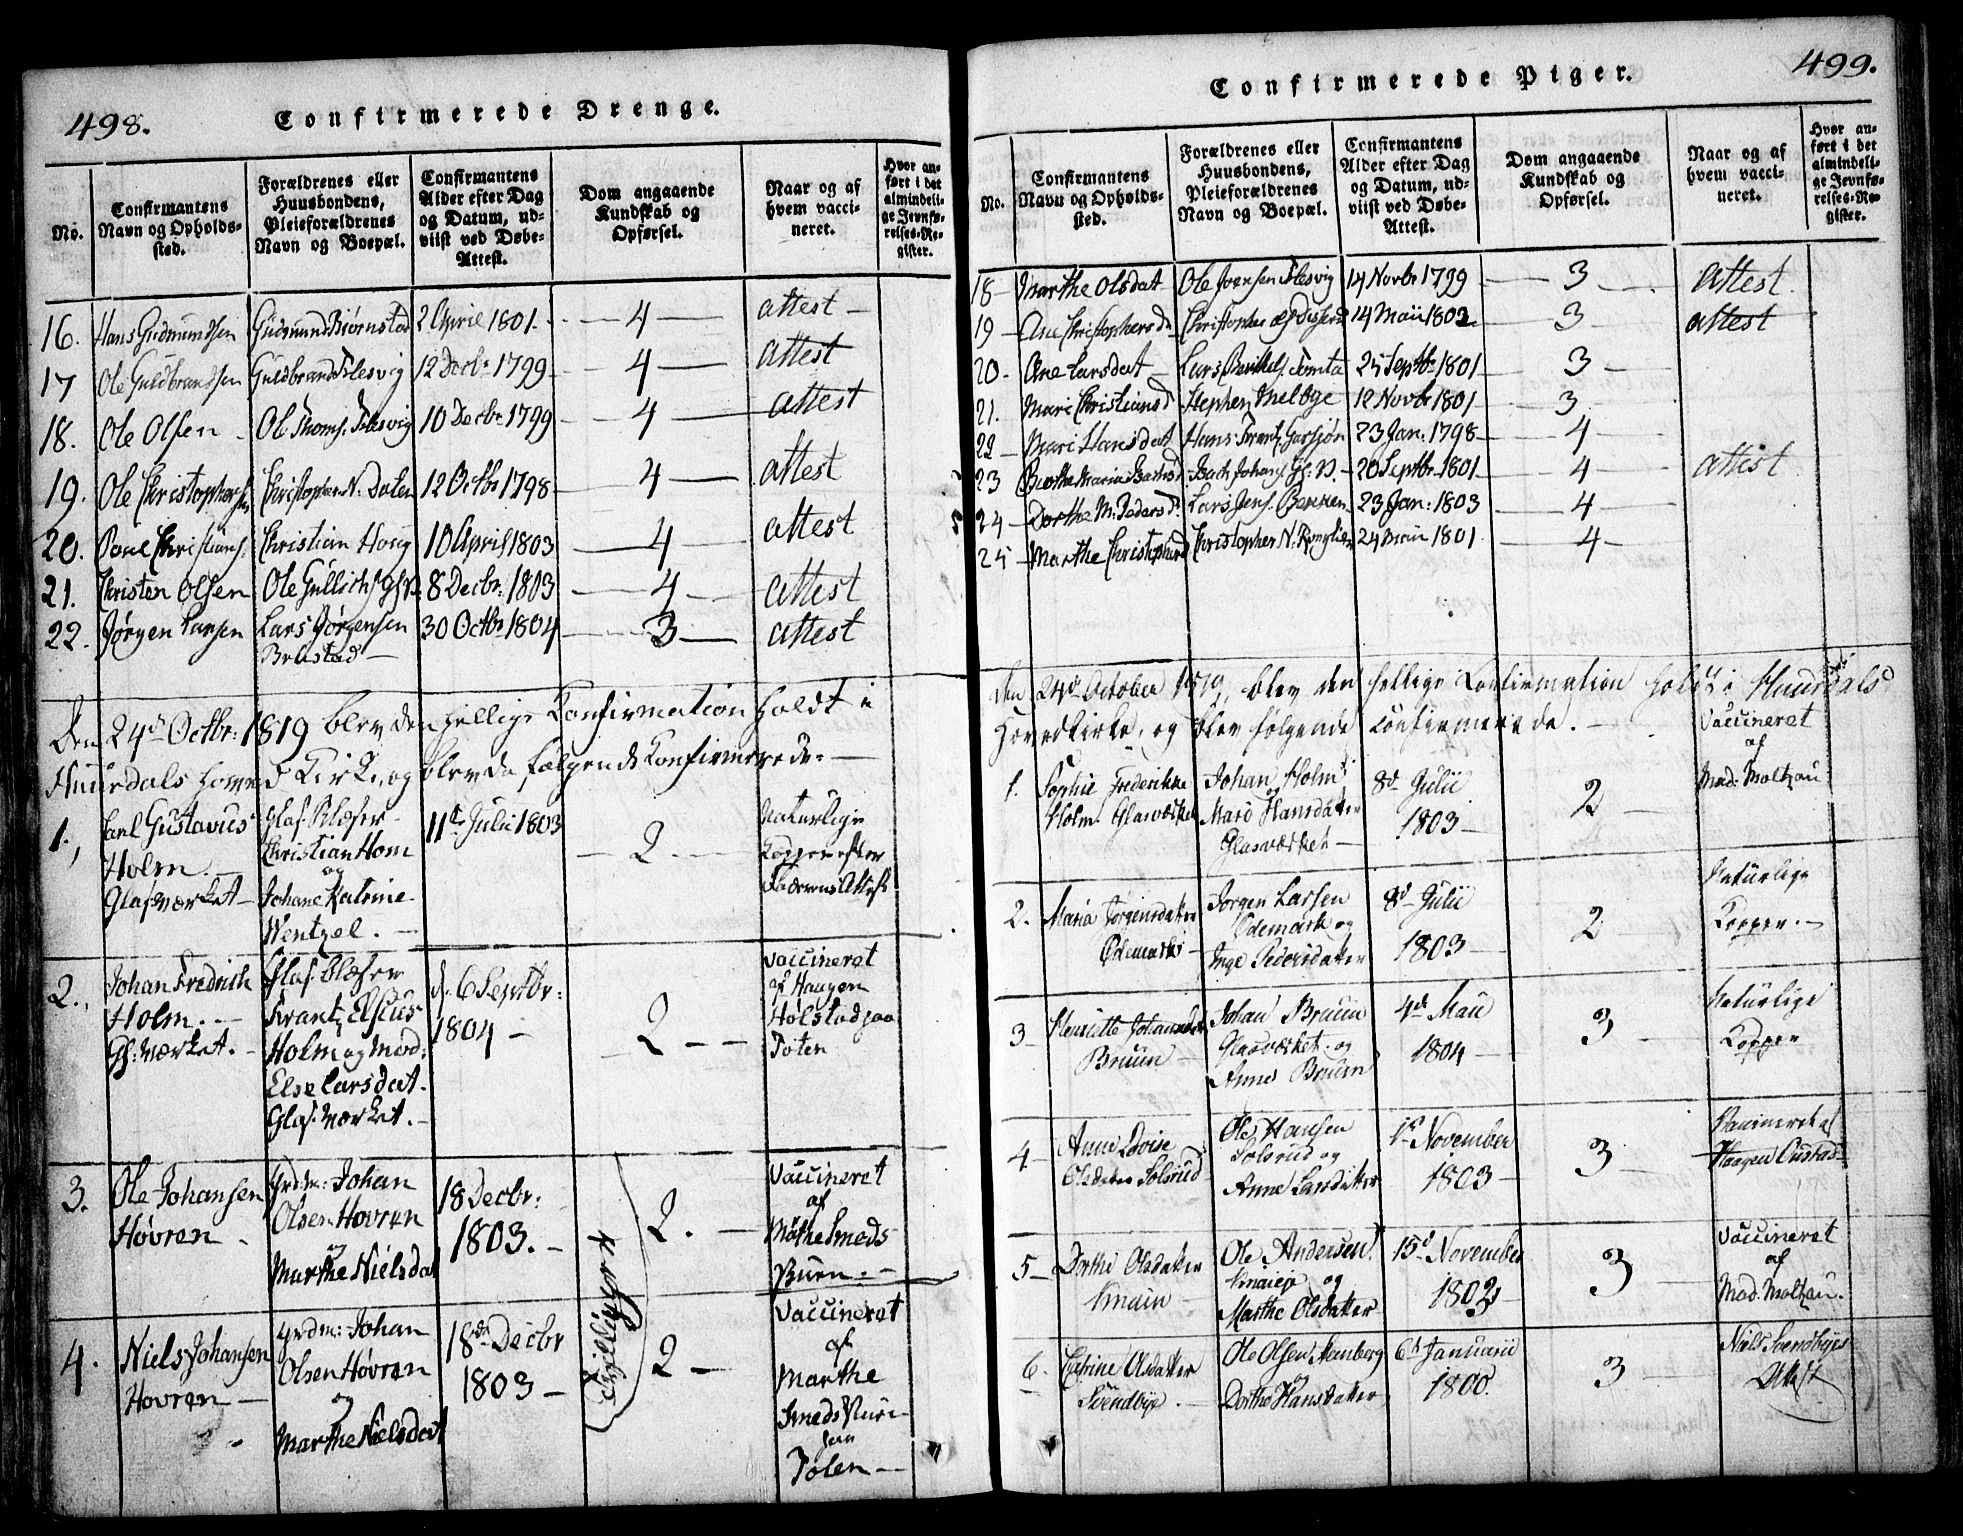 498.
Confirmerede Drenge.
No.
Confirmantens
Navn og Opholds-
sted.
Forældrenes eller
Huusbondens,
Pleieforældrenes
Navn og Boepæl.
Confirmantens
Alder efter Dag
og Datum, ud-
viist ved Døbe-
Attest.
Dom angaaende
Kundskab og
Opførsel.
Naar og af
hvem vacci-
neret.
Hvor an-
ført i det
almindeli-
ge Jevnfø-
relses-Re-
gister.
16. Hans Gudmundsen Gudmund Biørnstad 2 April 1801. 4 attest
17 Ole Guldbrandsen Guldbrand Flesvig 12 Decbr 1799 4 attest
18. Ole Olsen Ole Thoms. Flesvig 10 Decbr 1799 4 attest
19. Ole Christophersen Christopher N. Dalen 12 Octbr 1798 4 attest
20. Poul Christians. Christian Houg 10 April 1803 4 attest
21. Christen Olsen Ole 8 Decbr: 1803 4 attest
22. Jørgen Larsen Lars Jørgensen 30 Octbr 1804 3 attest
Brustad
Den 24d Octbr: 1819 blev den hellige Confirmation holdt i
Huurdals hoved Kirke, og blev da følgende Confirmerede.
1., Carl Gustavus Glas. Blæser 11te Julii 1803 2 Naturlige
Holm. Christian Hom Kopper efter
Glasværket og Faderens Attest
Johane Katrine
Wentzel.
2., Johan Fredrich Glas. blæser d. 6 Septbr: 2 Vaccineret
Holm. Frantz Elsius 1804 af Haagen
Gl: værket. Holm og Mad: Hølstad paa
Else Larsdat. Toten
Glas. værket.
3. Ole Johansen Grdm: Johan 18 Decbr: 2. Vaccineret
Høvren Olsen Høvren 1803. af
og Mathe Smeds
Marthe Nielsdat Buen.
Tvillinger
4. Niels Johansen Grdm: Johan 18de Decbr 2 Vaccineret
Hovren Olsen Høvren 1803 af
og Marthe
Marthe Nielsdat Smeds
paa
Tolen
499.
Confirmerede Piger.
No.
Confirmantens
Navn og Opholds-
sted.
Forældrenes eller
Huusbondens,
Pleieforældrenes
Navn og Boepæl.
Confirmantens
Alder efter Dag
og Datum, ud-
viist ved Døbe-
Attest.
Dom angaaende
Kundskab og
Opførsel.
Naar og af
hvem vacci-
neret.
Hvor an-
ført i det
almindeli-
ge Jevnfø-
relses-Re-
gister.
18 Marthe Olsdat Ole Flesvig 14 Novbr 1799 3 attest
19 Ane Christophersd Christopher 14 Maii 1802 3 attest
20. Ane Larsdat Lars Berthels. Tomta 25 Septbr 1801 3
21. Mari Christiansd Stephen Melbye 12 Novbr 1801 3
22 Mari Hansdat Hans Frantz Garsjøn 23 Jan: 1798 4
23 Berthe Maria Johans. Gl. V. 20 Septbr 1801 4 attest
24 Dorthe M. Pedersd. Lars Jens. 23 Jan: 1803 4
25 Marthe Christophersd Christopher N. 24 Maii 1801 4
Den 24de October 1819, blev den hellige Confirmation holdt i Huurdals
Hovedkirke, og blev følgende Confirmerede.
1. Sophie Frederikke Johan Holm 8d Julii 2 Vaccineret
Holm Glasværket og 1803 af
Mari Hansdatter Mad: Moltzau
Glasværket
2. Maria Jørgensdatter Jørgen Larsen 8d Julii 2 Naturlige
Ødemarks Ødemark og 1803 Kopper.
Inge Pedersdatter
3 Henriette Johansdatter Johan Bruun 4de Maii 3 Naturlige
Bruun Glasværket og 1804 Kopper
Anne Bruun
4 Anne Lovise Ole Hansen 1st November 3 Vaccineret af
Olsdatter Solsrud Solsrud og 1803 Haagen
Anne Larsdatter
5 Dorthe Olsdatter Ole Andersen 15d November 3 Vaccineret
Knaiep og 1802 af
Marthe Olsdatter Mad. Moltzau.
6. Catrine Olsdatter Ole Olsen 6d Januarii 3 Niels Svendbyes
Svendbye. og 1800. Attest
Dorthe Hansdatter